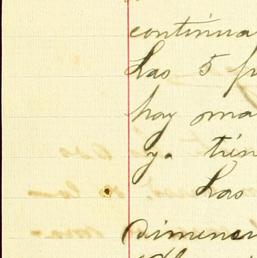 continua
Las 5 p
hay ma
y. tien
Las
dimenci